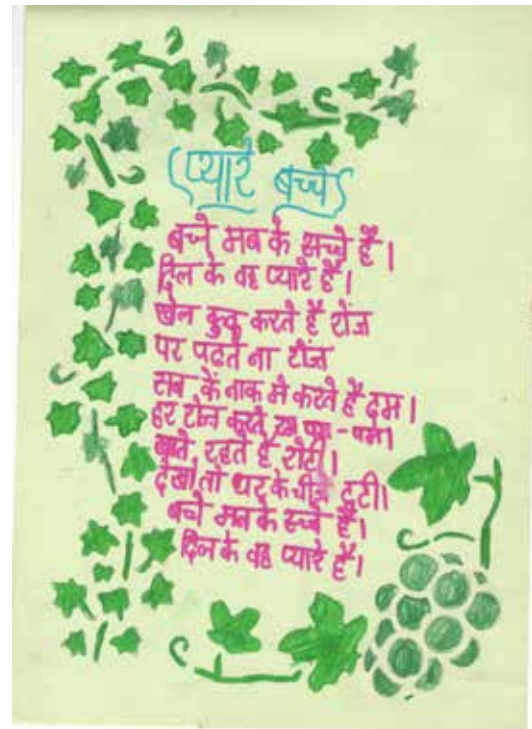 (प्यारे बच्चे)
बच्चे मन के सच्चे है।
दिल के वह प्यारे है।
खेल कुद करते है रोज
पर पढते ना रोज
सब के नाक मे करते है दम।
हर रोज करते
खाते, रहते है रोटी।
देखो तो घर के चीज टुटी।
बचे मन के सच्चे है।
दिल के वह प्यारे है।